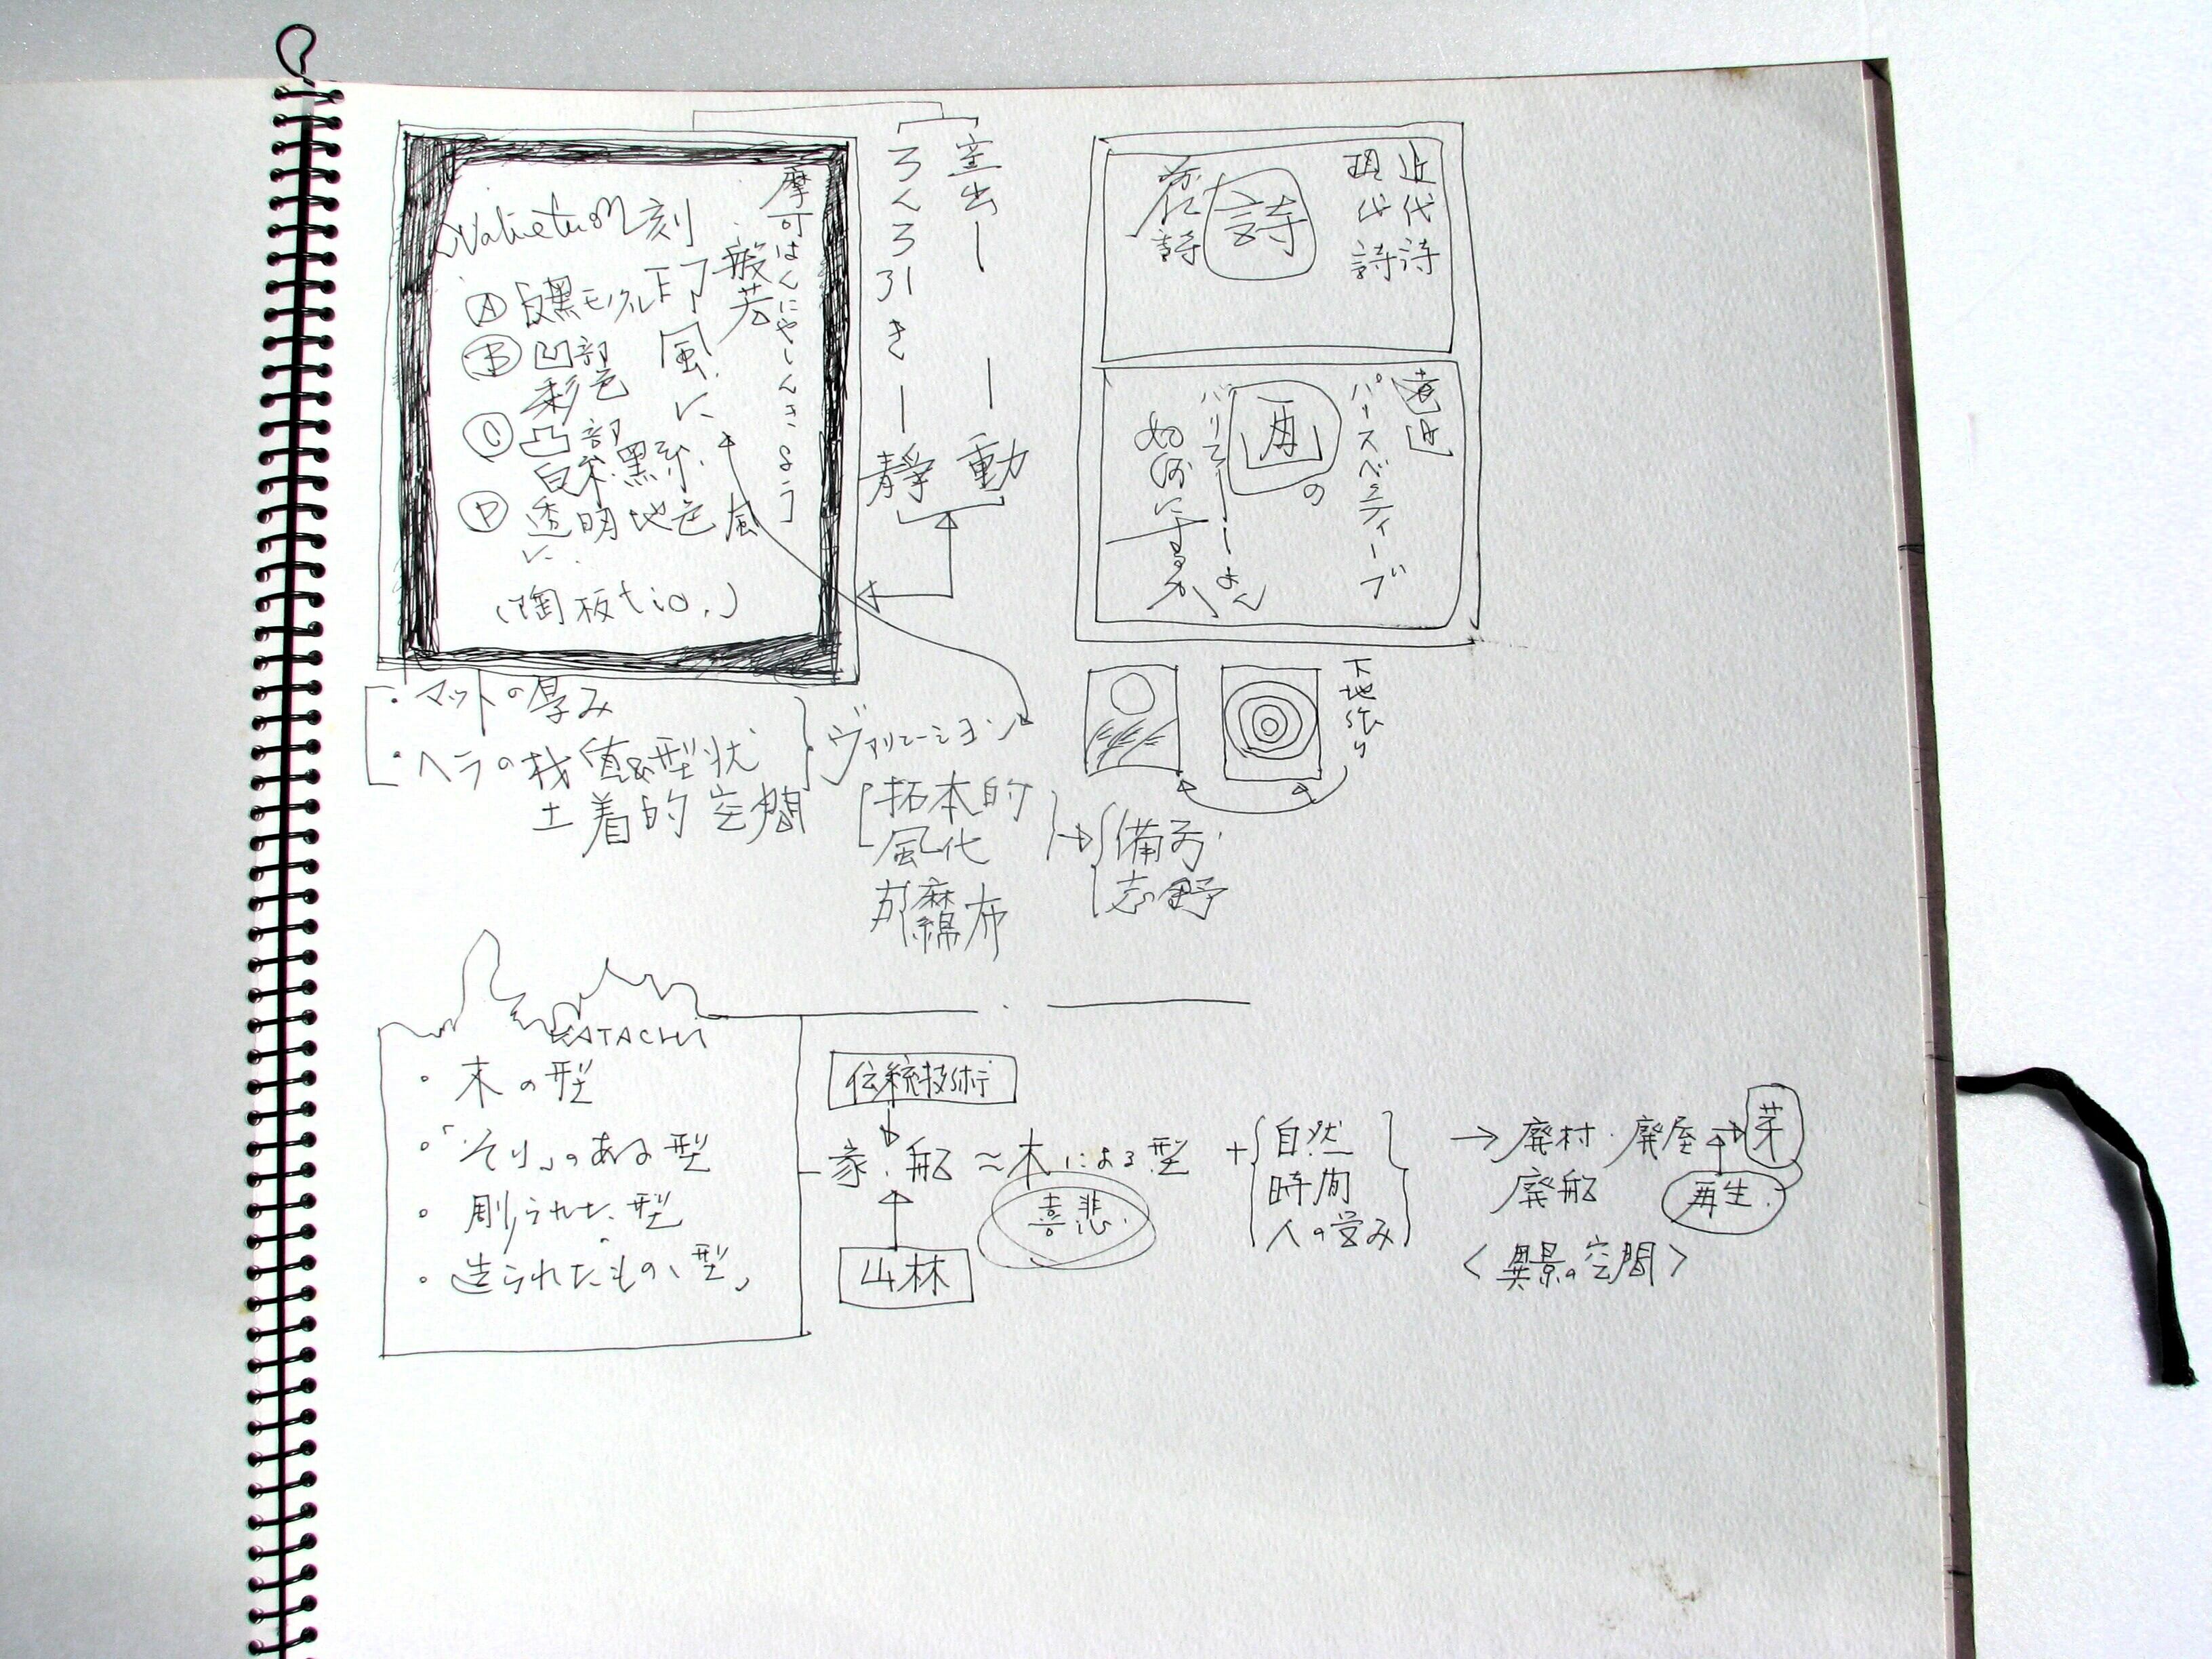 摩可はんにやしんきょう
般若
刻
印
風
に
Ⓐ 白黒モノクル
Ⓑ 凹部
彩色
Ⓒ 凸部
白系.黒系.
Ⓓ 透明地色風
に.
(陶板tio.)
墨出し — 動
ろくろ引き — 静
・マットの厚み
・ヘラの材質&型状
土着的空間
ヴァリエーション
拓本的
風化
麻綿布
備前
志野
近代詩
現代詩
詩
パースペクティーブ
再
の
バリエーション
如何にするか
下地作り
KATACHI
・木の型
・「そり」のある型
・彫られた型
・造られたもの、型」
伝統技術
家.船≈木による型
喜悲.
山林
+
自然
時間
人の営み
→廃村.廃屋→芽
廃船
再生.
<異景の空間>